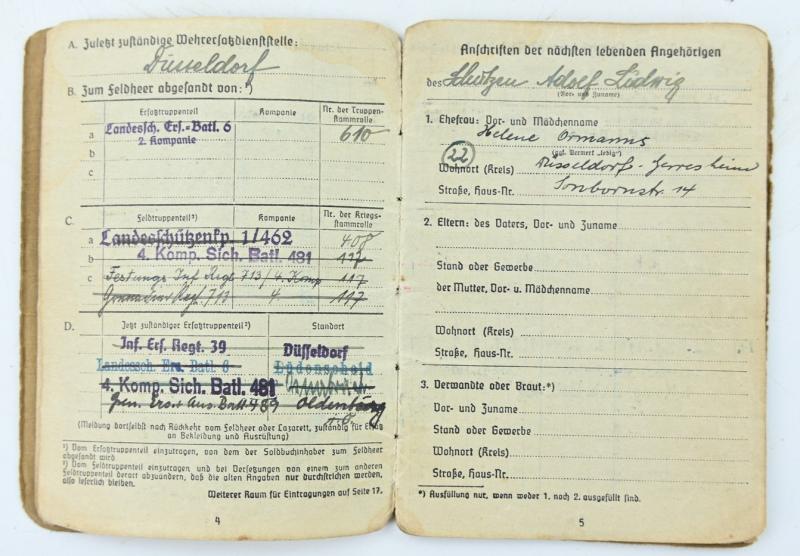 A. Zuletzt zuständige Wehrersatzdienststelle:
Düsseldorf
B. Zum Feldheer abgesandt von:¹)
Ersatztruppenteil Kompanie Nr. der Truppenstammrolle
a Landessch. Ers.-Batl. 6 610
2. Kompanie
b
c
C. Feldtruppenteil²) Kompanie Nr. der Kriegsstammrolle
a Landesschützenkp. 1/462 408
b 4. Komp. Sich. Batl. 481 137
c Festungs Inf Regt 713/4. Komp 117
Grenadier Regt. 713 4 117
D. Jetzt zuständiger Ersatztruppenteil²) Standort
Inf. Ers. Regt. 39 Düsseldorf
Landessch. Ers. Batl. 6 Lüdenscheid
4. Komp. Sich. Batl. 481
Gren. Ers. u. Ausb. Batl 489 Oldenburg
i.O.
(Meldung dortselbst nach Rückkehr vom Feldheer oder Lazarett, zuständig für Ersatz
an Bekleidung und Ausrüstung)
¹) Vom Ersatztruppenteil einzutragen, von dem der Soldbuchinhaber zum Feldheer
abgesandt wird
²) Vom Feldtruppenteil einzutragen und bei Versetzungen von einem zum anderen
Feldtruppenteil derart abzuändern, daß die alten Angaben nur durchstrichen werden,
also leserlich bleiben.
Weiterer Raum für Eintragungen auf Seite 17.
4
Anschriften der nächsten lebenden Angehörigen
des Schützen Adolf Ludwig
(Vor- und Zuname)
1. Ehefrau: Vor- und Mädchenname
Helene Ormanns
(ggf. Vermerk „ledig")
22 Wohnort (Kreis) Düsseldorf-Gerresheim
Straße, Haus-Nr. Sonbornstr. 14
2. Eltern: des Vaters, Vor- und Zuname
Stand oder Gewerbe
der Mutter, Vor- u. Mädchenname
Wohnort (Kreis)
Straße, Haus-Nr.
3. Verwandte oder Braut:*)
Vor- und Zuname
Stand oder Gewerbe
Wohnort (Kreis)
Straße, Haus-Nr.
*) Ausfüllung nur, wenn weder 1. noch 2. ausgefüllt sind.
5